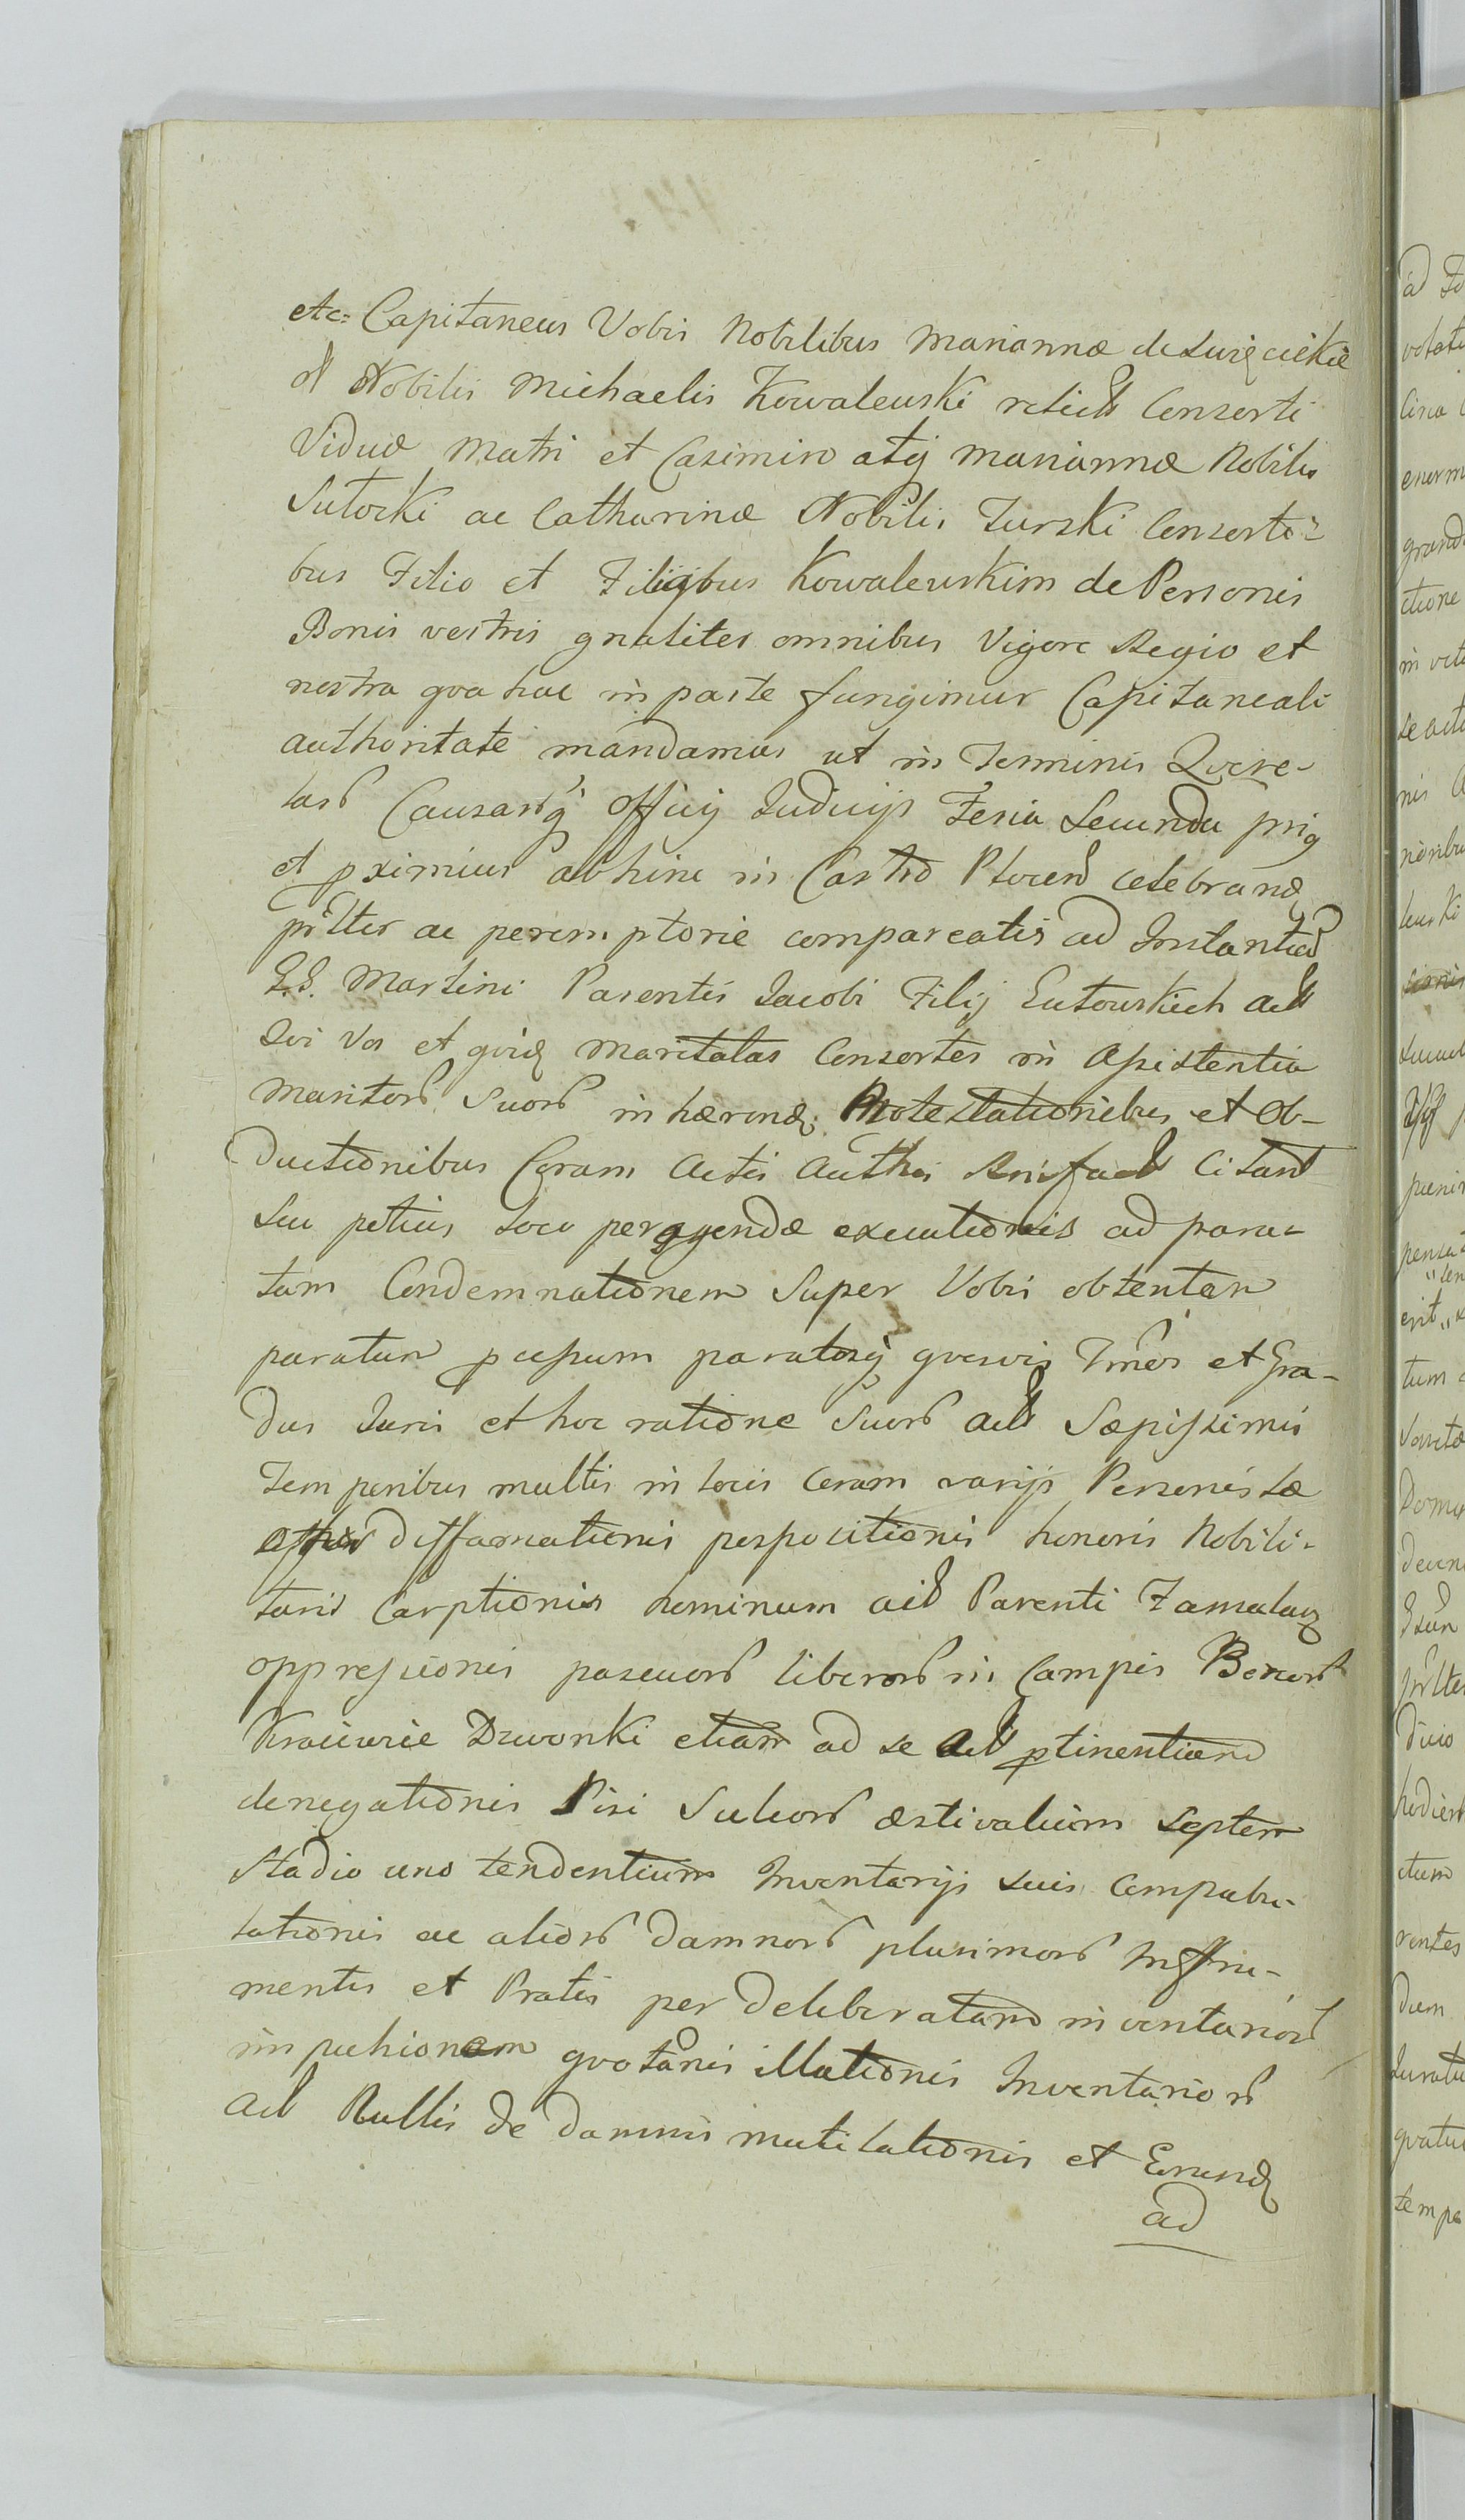 etc= Capitaneus Vobis Nobilibus Mariannæ de Święcickie
ol Nobilis Michaelis Kowalewski relictæ Consorti
Viduæ Matri et Casimiro atq Mariannæ Nobilis
Sutocki ac Catharinæ Nobilis Turski Consorti=
bus Filio et Filiabus Kowalewskim de Personis
Bonis vestris gnaliter omnibus Vigore Regio et
nostra qva hac in parte fungimur Capitaneali
authoritate mandamus ut in Terminis Qvere-
larū Causarūq Officij Judicijs Feria Secunda
et pximius abhinc in Castro Plocen celebrand
prsltr ac peremptorie compareatis ad Instantiā
G.G. Martini Parentis Jacobi Filij Lutowskich act
Qvi Vos et qvid Maritatas Consortes in Assistentia
Maritorū Suorū inhærend Protestationibus et Ob-
ductionibus Coram Actis Authen citant
Seu potius loco peragendæ executionis ad para-
tam Condemnationem Super Vobis obtentam
paratum passum qvosvis Tmnos et Gra-
dus Juris et hoc ratione Suorū act Sæpissimis
Temporibus multis in locis Coram varijs Personis læ
diffamationis honoris Nobili-
taris Carptionis hominum act Parenti Famulaq
oppressionis pascuorū liberorū in Campis Bonorū
Kraiewie Dzwonki etiam ad se act ptinentium
denegationis Pisi Sulcorū æstivalium Septem
Stadio uno tendentium Inventarijs suis Compabu-
lationis ac aliorū damnorū plurimorū In fru-
mentis et Pratis per deliberatam inventariorū
impulsionem qvotanis illationis Inventariorū
act Nullis de damnis mutilationis et Eorund
ad